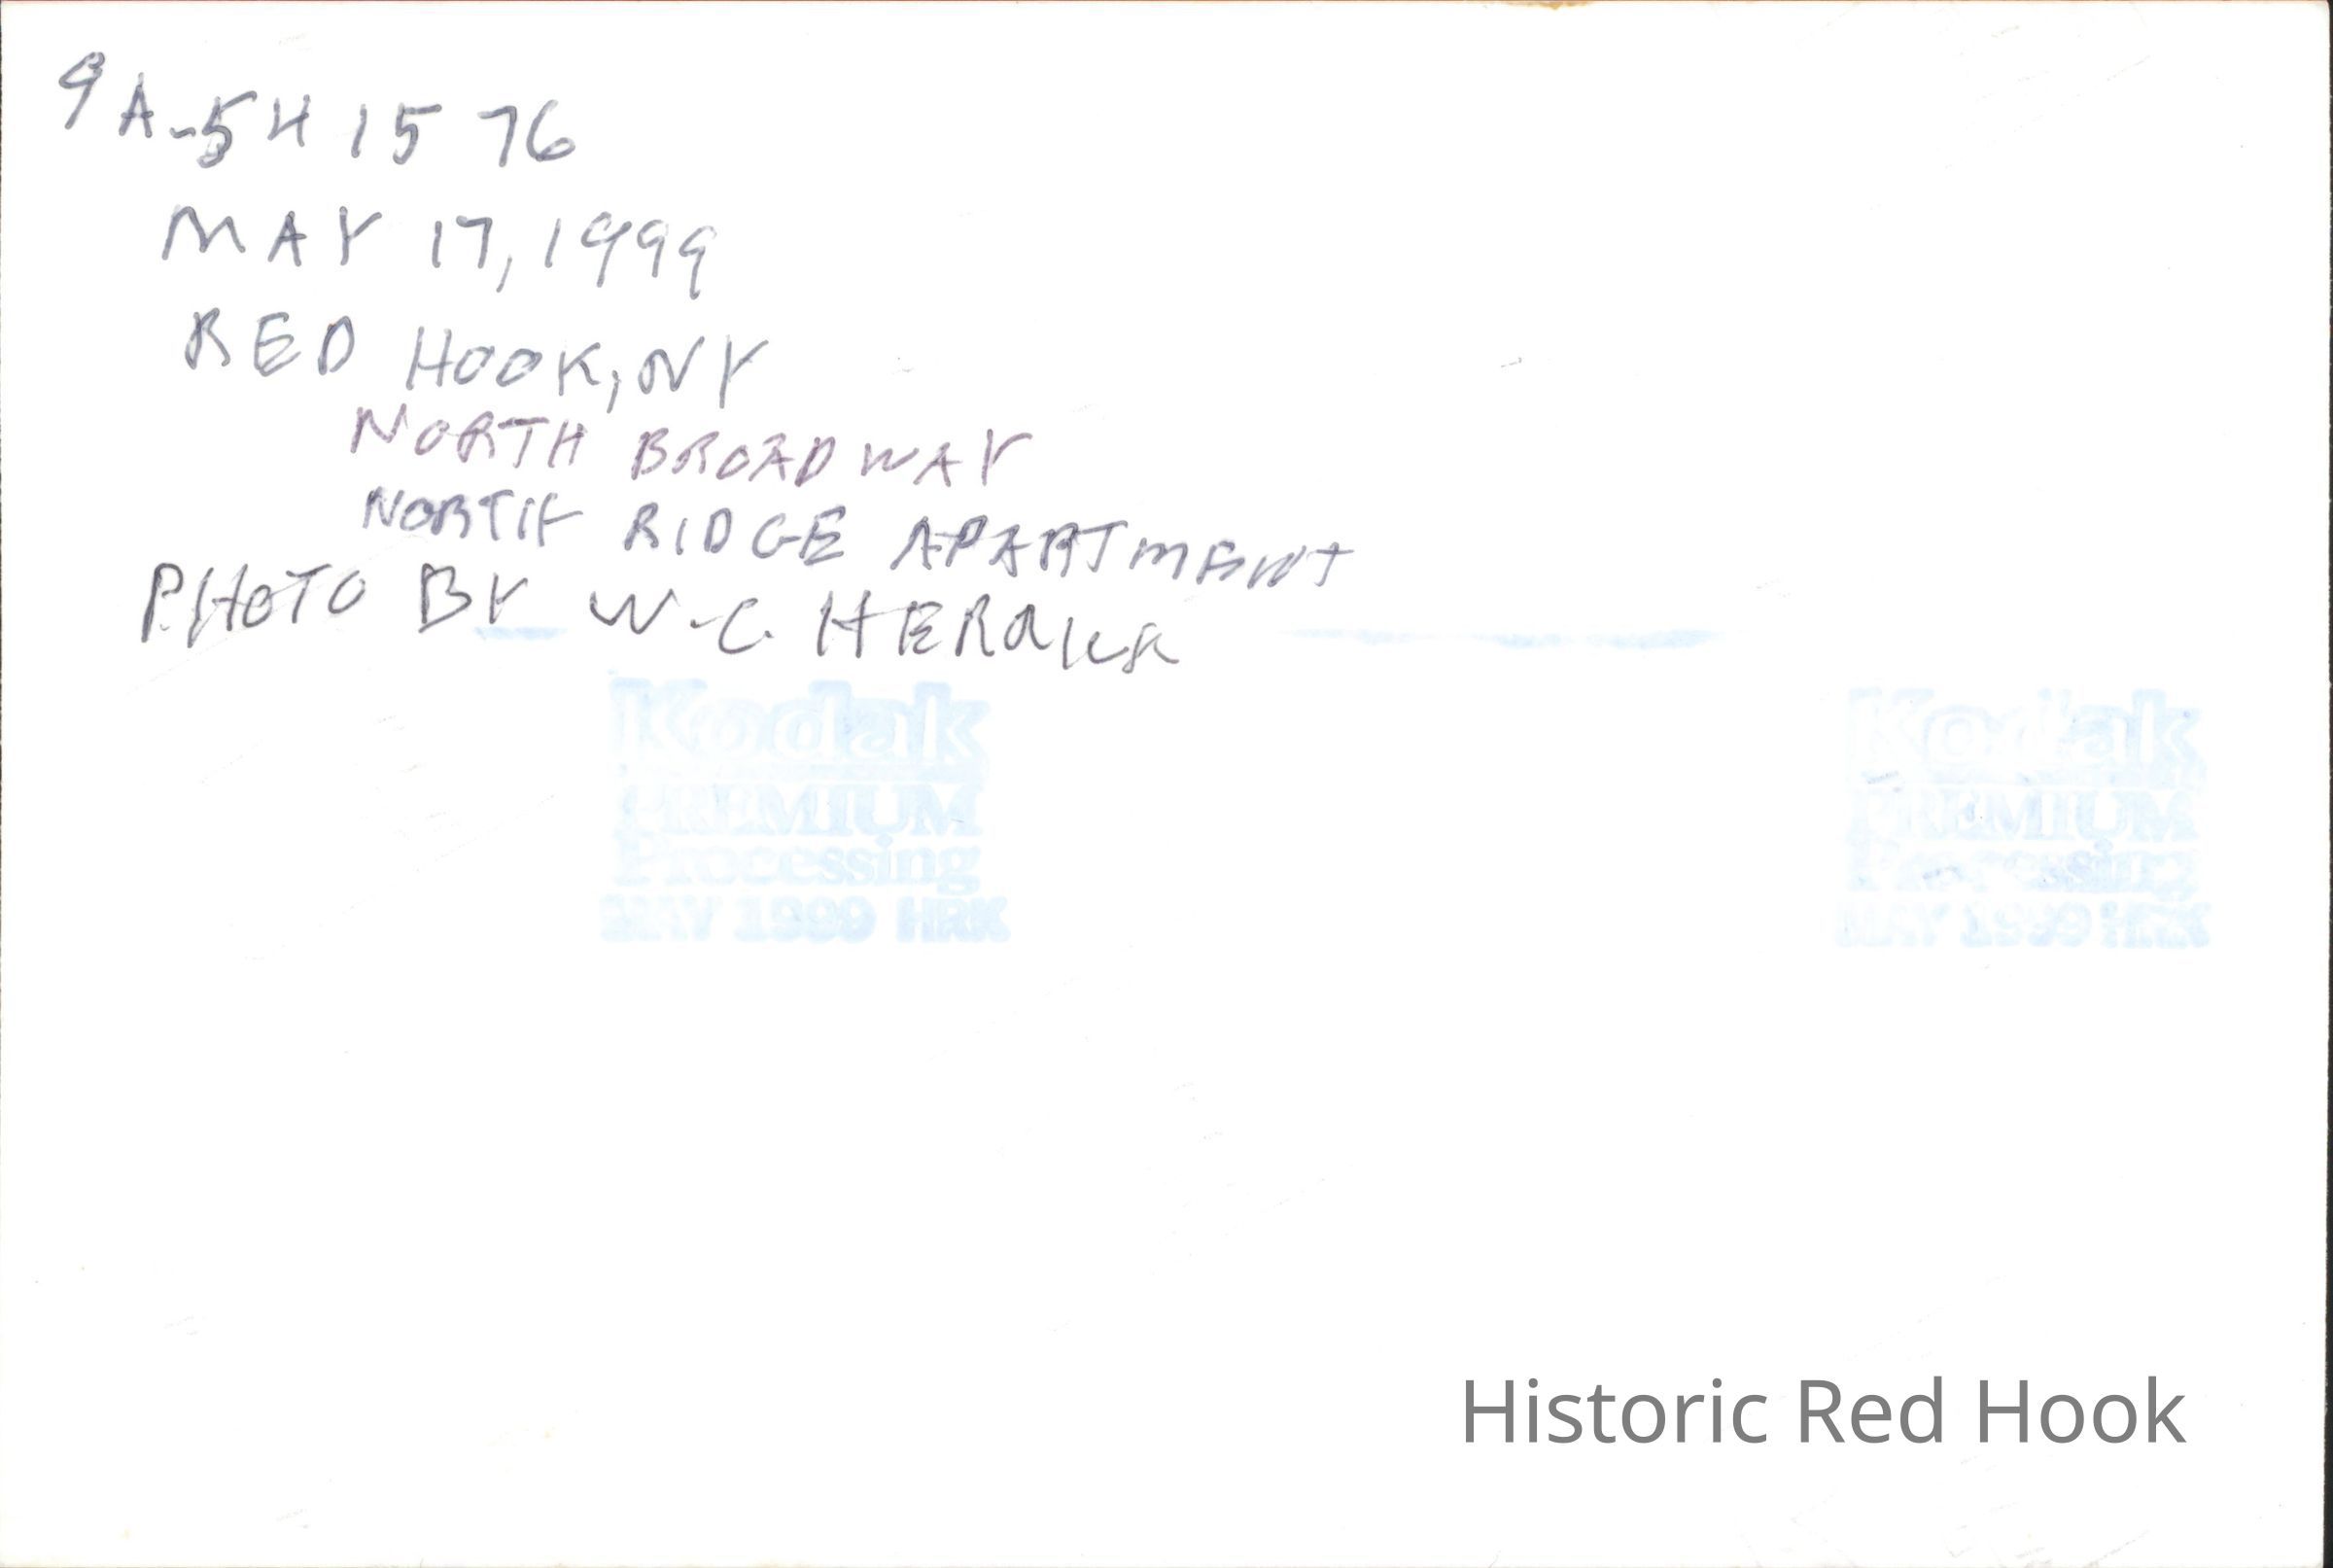 9A-5H 15 76
MAY 17, 1999
RED HOOK, NY
NORTH BROADWAY
NORTH RIDGE APARTMENT
PHOTO BY W.C. HERRICK
Kodak
PREMIUM
Processing
MAY 1999 HRK
Kodak
PREMIUM
Processing
MAY 1999 HRK
Historic Red Hook